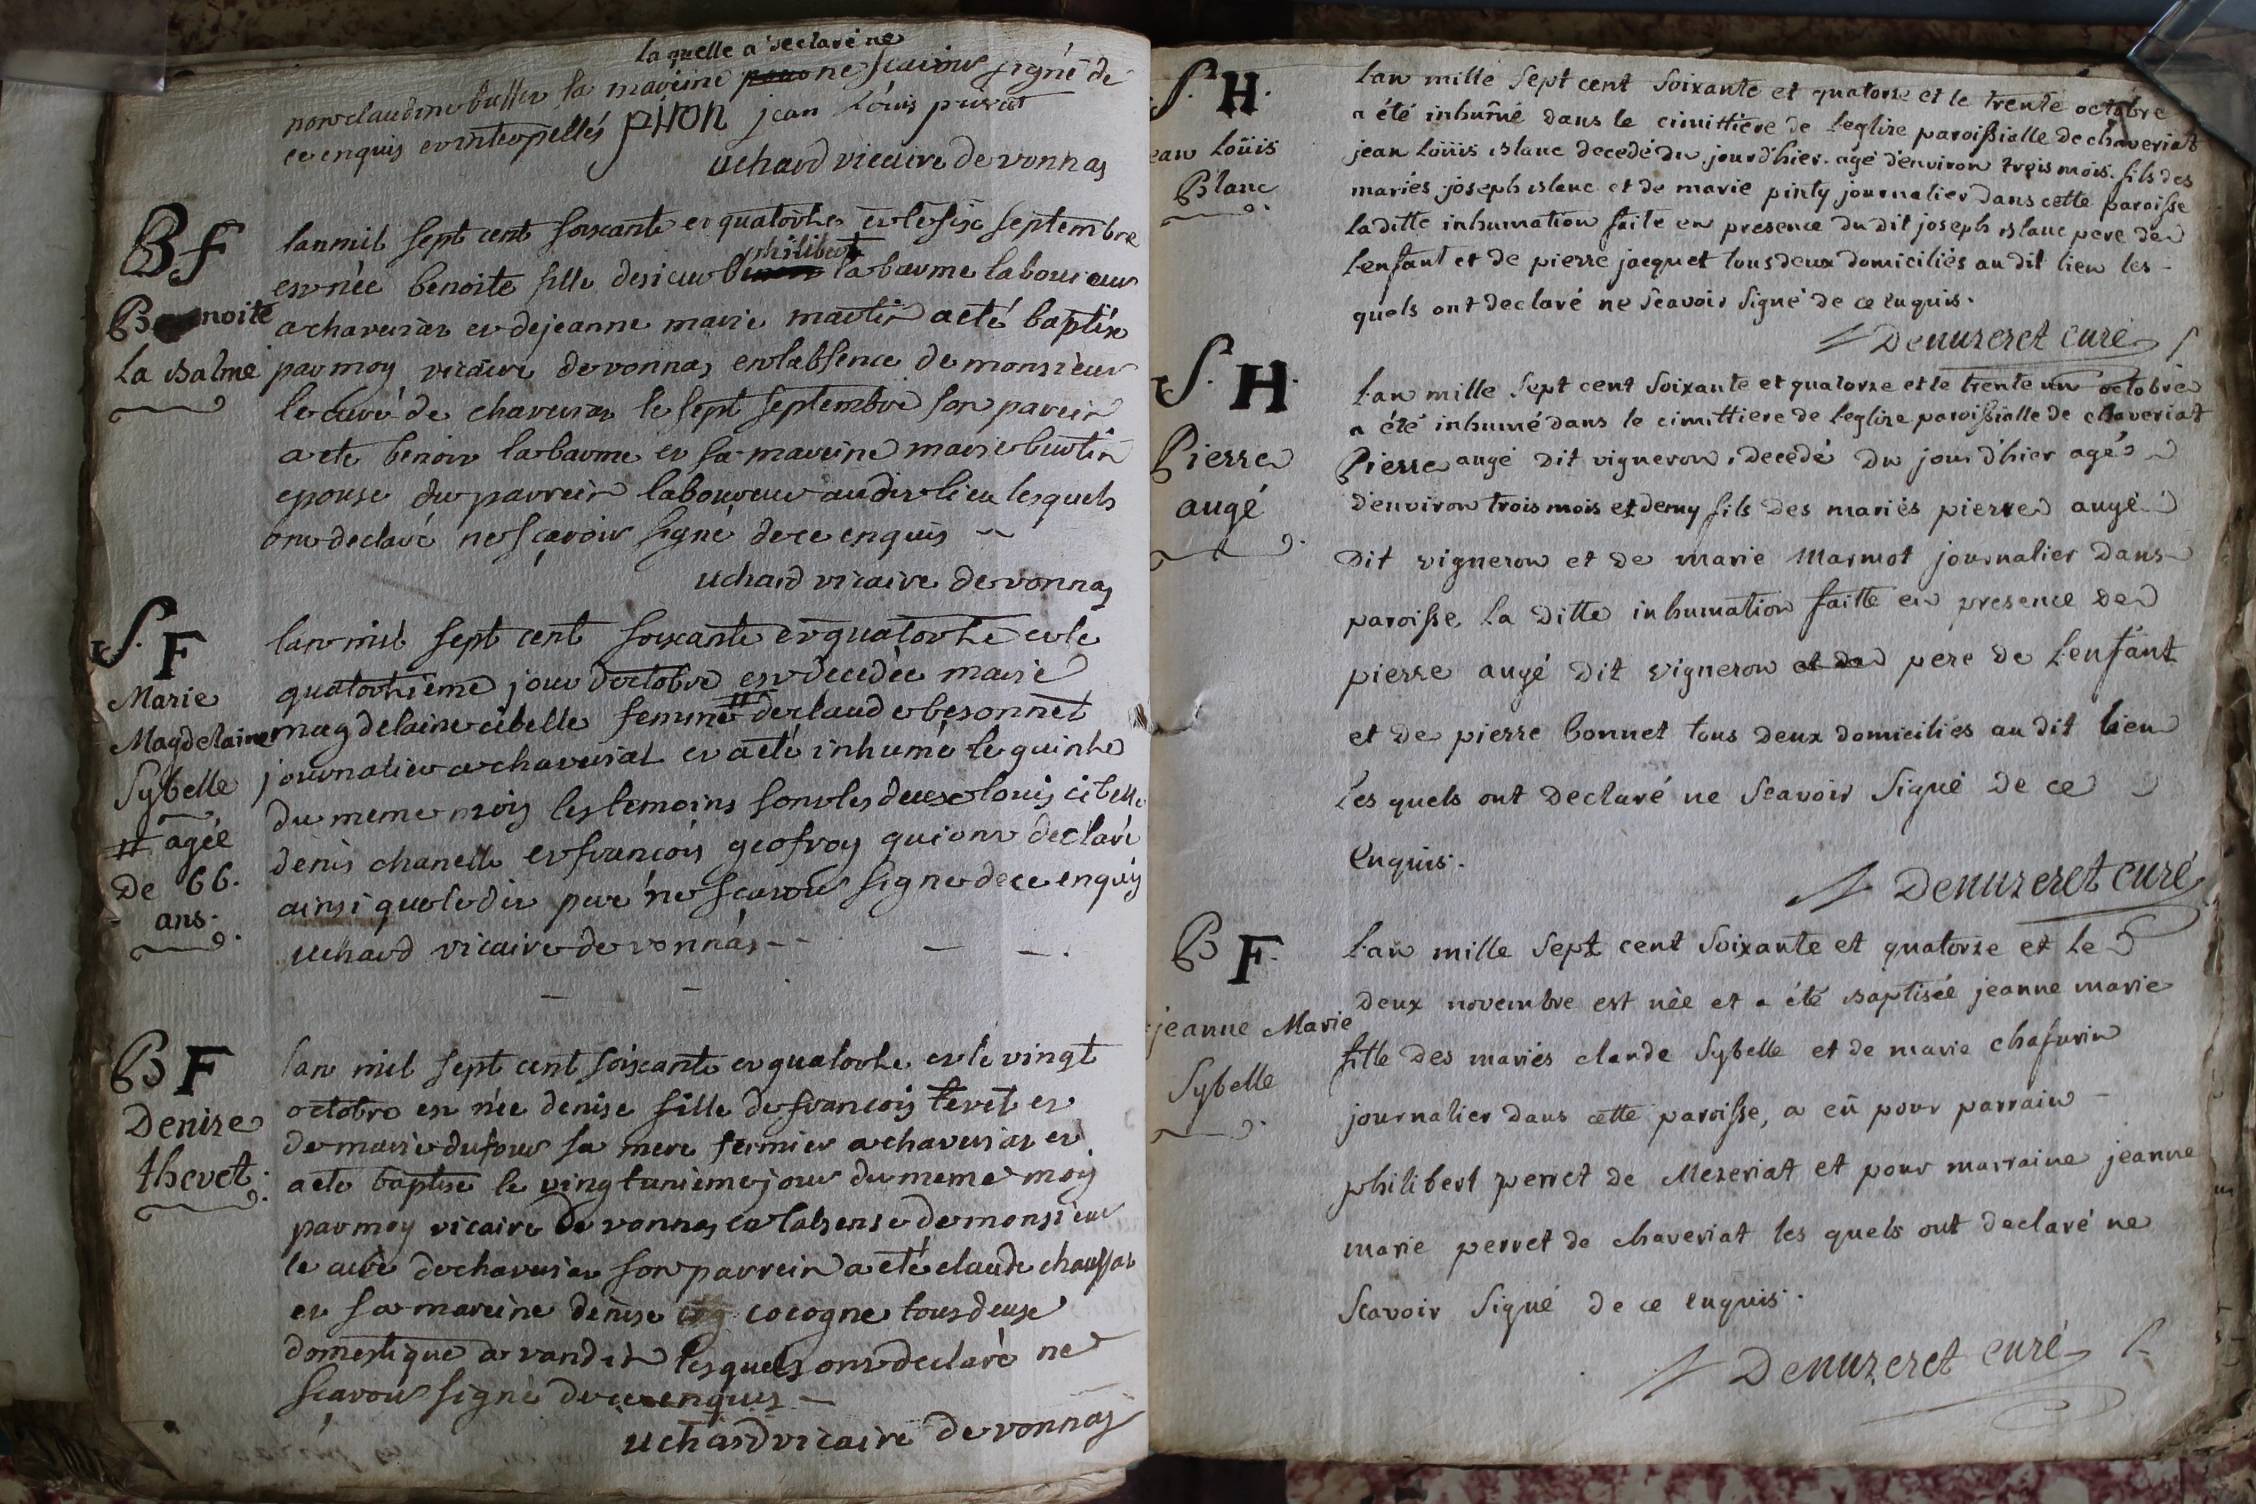 la quelle a declaré ne
non claudine buffer la mareine ne scavoir signé de
ce enquis et interpellés PHON jean louis privat
uchard vicaire de vonnas
BF
Benoite
La Balme
lan mil sept cent soixante et quatorhe et le six septembre
est née benoite fille de sieur philibert labaume laboureur
a chaveriat et de jeanne marie martin a eté baptisé
par moy vicaire de vonnas en labsence de monsieur
le curé de chaveriat le sept septembre son parein
a ete benoit labaume et sa mareine marie burtin
epouse du parrein laboureur audit lieu lesquels
ont declaré ne sçavoir signé de ce enquis
uchard vicaire de vonnas
S. F
Marie
Magdelaine
Sybelle
# agée
De 66.
ans.
lan mil sept cent soixante et quatorhe et le
quatorhieme jour doctobre est decedée marie
magdelaine cibelle femme # de claude besonnet
journalier a chaveriat et a eté inhumé le quinhe
du meme mois les temoins sont les deux louis cibelle
denis chanelle et francois geofroy qui ont declaré
ainsi que ledit pere ne scavoir signer de ce enquis
uchard vicaire de vonnas
B F
Denize
thevet.
lan mil sept cent soixante et quatorhe et le vingt
octobre est née denise fille de francois tevet et
de marie dufour sa mere fermier a chaveriat et
a ete baptisé le vingtunieme jour du meme mois
par moy vicaire de vonnas en labsense de monsieur
le curé de chaveriat son parrein a eté claude chaussat
et sa mareine denise cocogne tous deuse
domestique a vandein lesquels ont declaré ne
scavoir signé de ce enquis
uchard vicaire de vonnas
S. H.
jean Loüis
Blanc
L'an mille sept cent soixante et quatorze et le trente octobre
a été inhumé dans le cimittiere de l'eglize paroissialle de chaveriat
jean Loüis Blanc decedé du jour d'hier. agé d'environ trois mois. fils des
mariés joseph Blanc et de marie pinty journalier dans cette paroisse
la ditte inhumation faite en presence du dit joseph Blanc pere de
l'enfant et de pierre jacquet tous deux domiciliés au dit lieu les-
quels ont declaré ne scavoir signé de ce enquis.
Denuzeret curé
S. H.
Pierre
augé
L'an mille sept cent soixante et quatorze et le trente un octobre
a été inhumé dans le cimittiere de l'eglize paroissialle de chaveriat
Pierre augé dit vigneron, decedé du jour d'hier agé
d'environ trois mois et demy fils des mariés pierre augé
dit vigneron et de marie Marmot journalier dans
paroisse la ditte inhumation faitte en presence de
pierre augé dit vigneron et de pere de l'enfant
et de pierre bonnet tous deux domiciliés au dit lieu
les quels ont declaré ne scavoir signé de ce
enquis.
Denuzeret curé
B F.
jeanne Marie
Sybelle
L'an mille sept cent soixante et quatorze et le
deux novembre est née et a été Baptisée jeanne marie
fille des mariés claude Sybelle et de marie chafurin
journalier dans cette paroisse, a eû pour parrain
philibert perret de Mezeriat et pour marraine jeanne
marie perret de chaveriat les quels ont declaré ne
scavoir signé de ce enquis.
Denuzeret curé